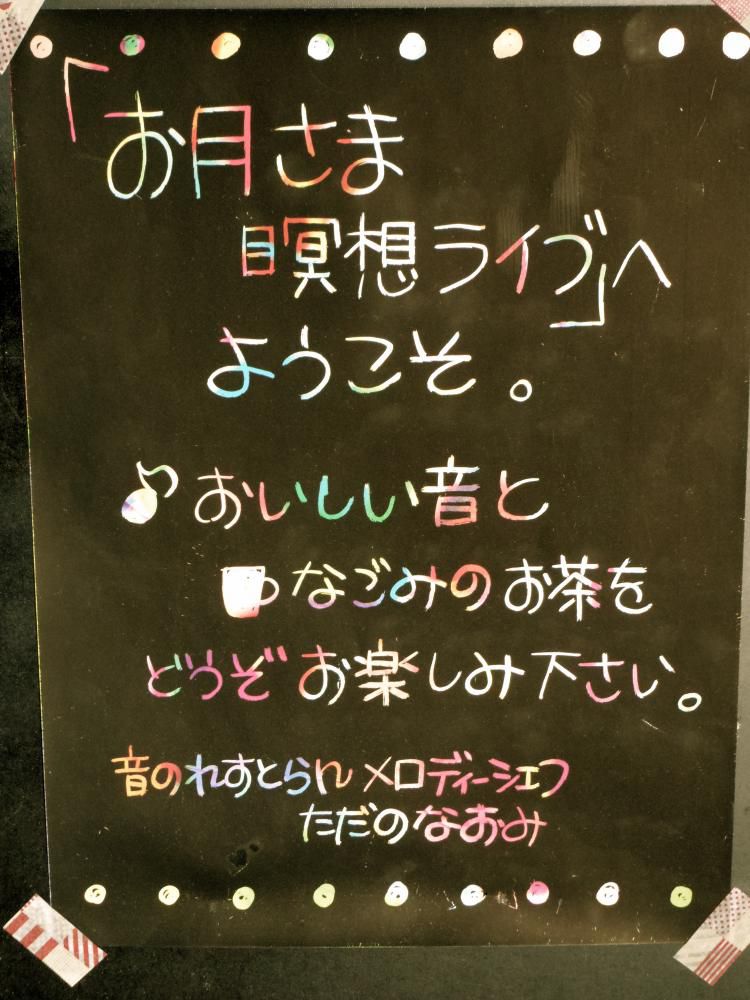 「お月さま
瞑想ライブ」へ
ようこそ。
おいしい音と
なごみのお茶を
どうぞお楽しみ下さい。
音のれすとらん メロディーシェフ
ただのなおみ